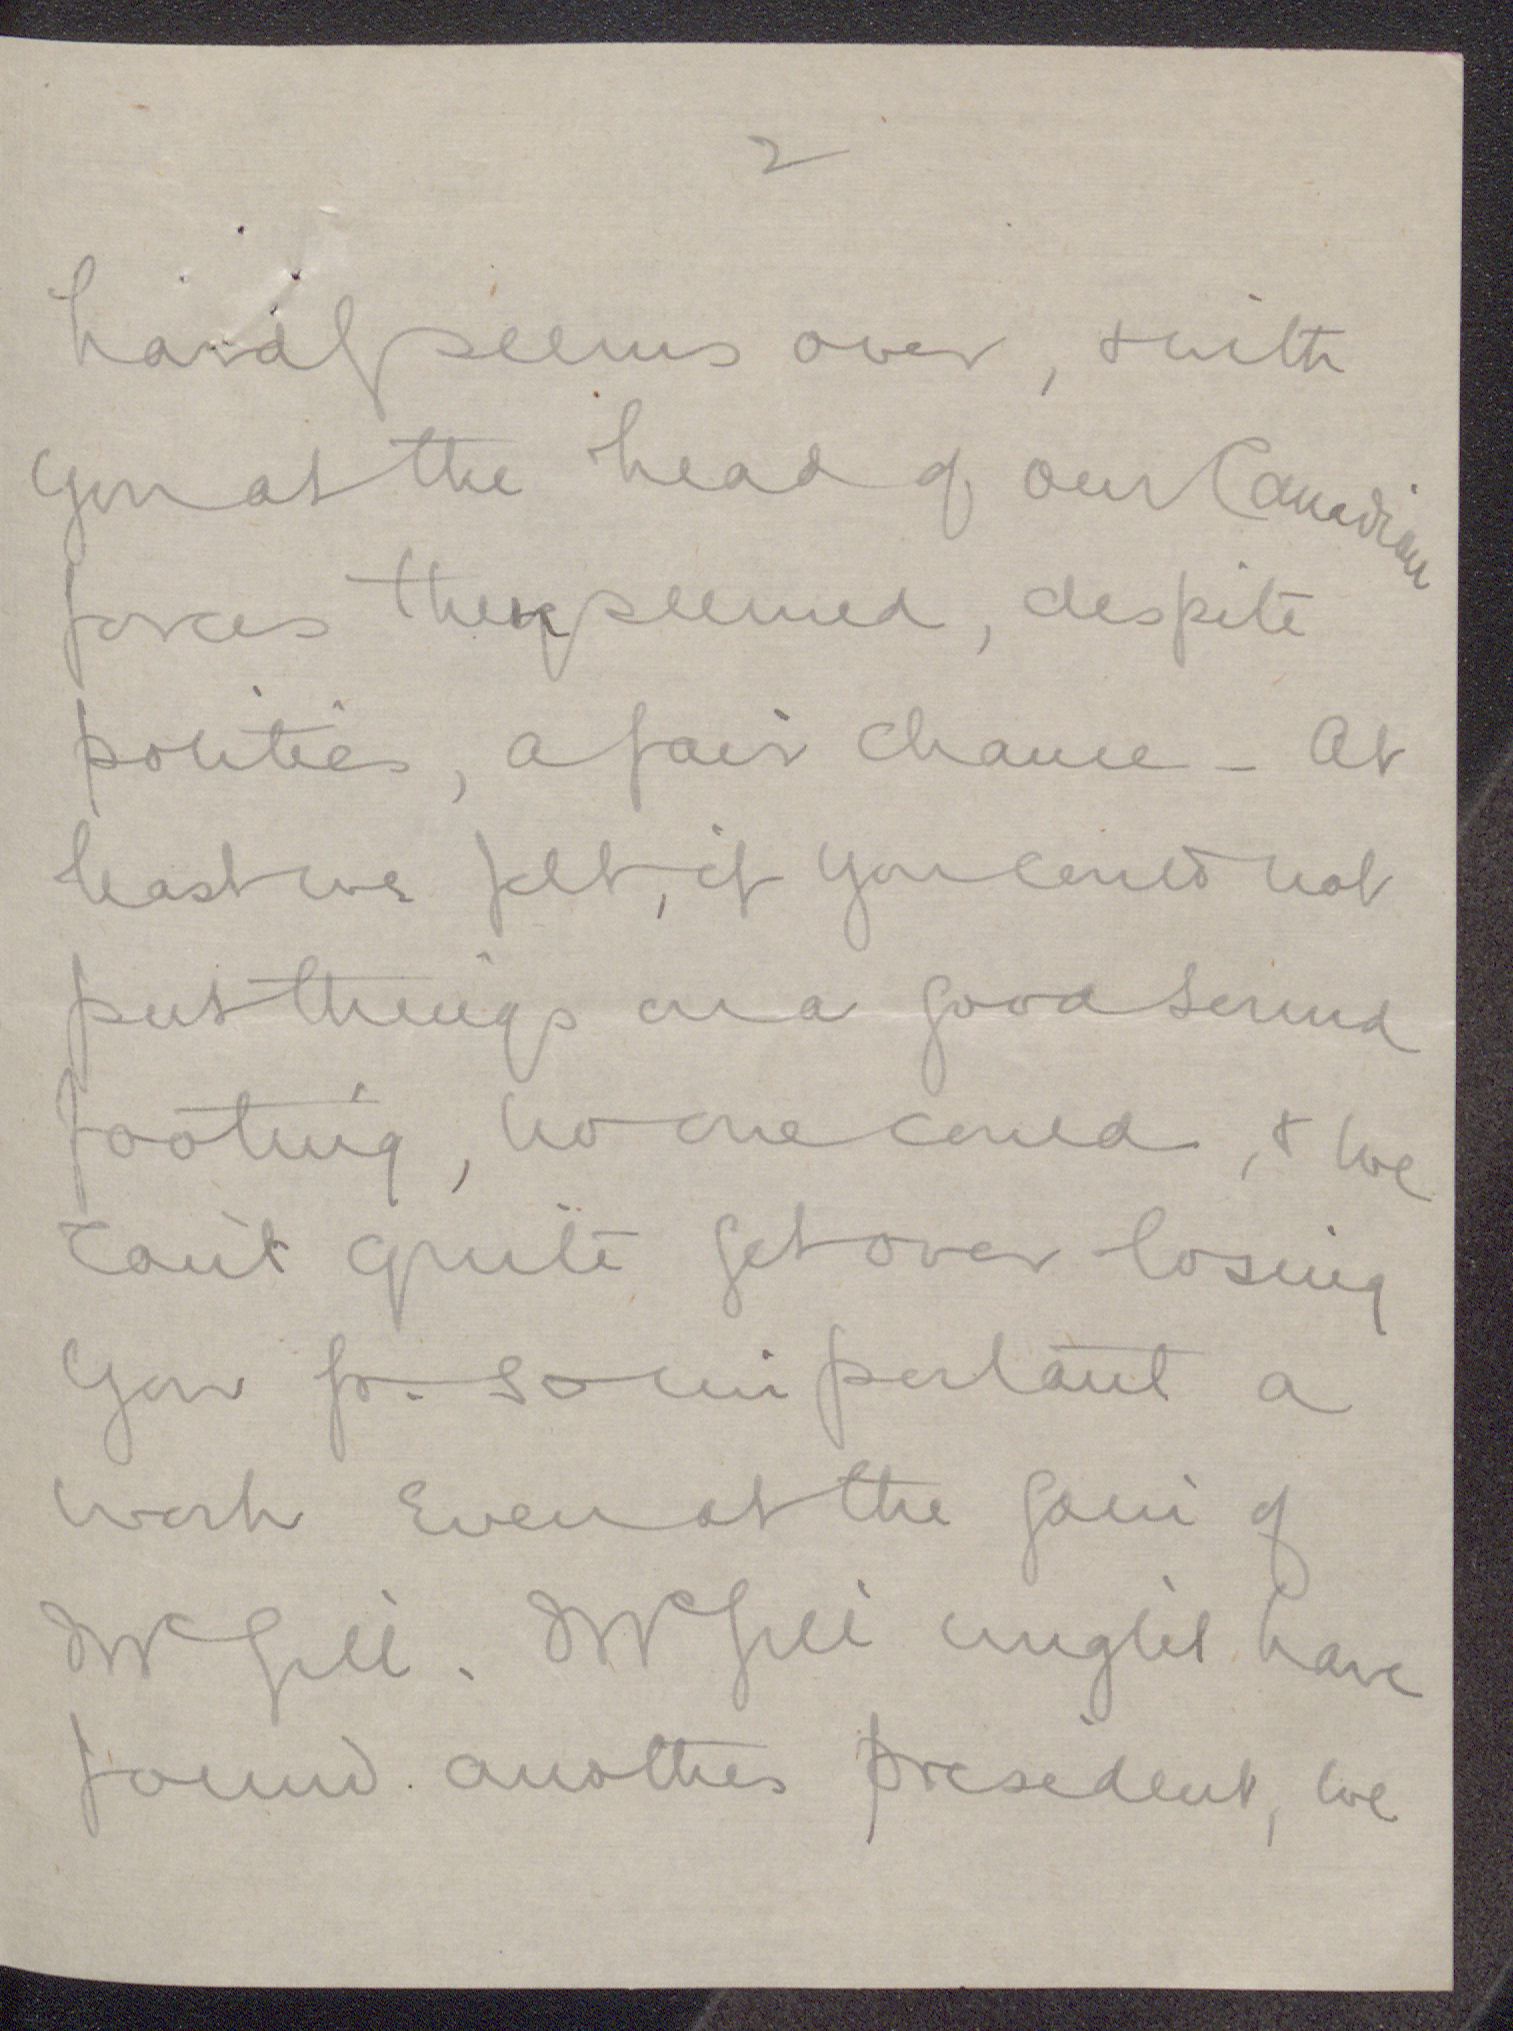 2
hardly seems over, & with
you at the head of our Canadian
forces there seemed, despite
politics, a fair chance - At
least we felt, if you could not
put things on a good sound
footing, no one could, & we
can't quite get over losing
you for so important a
work even at the gain of
McGill. McGill might have
found another president, we